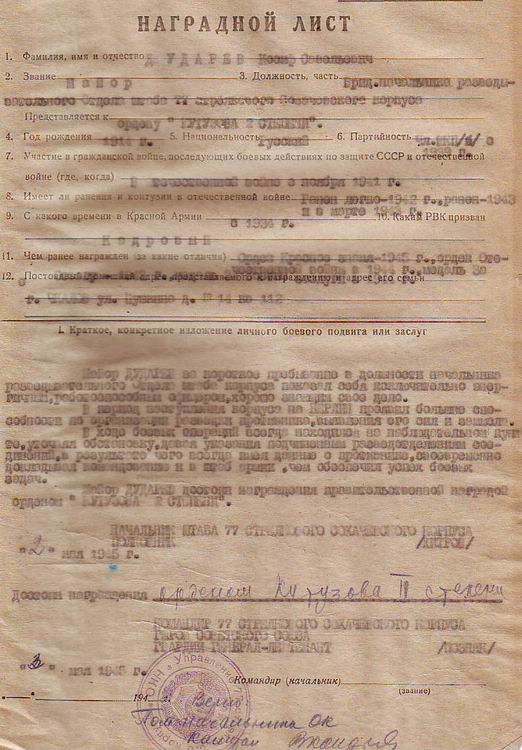 НАГРАДНОЙ ЛИСТ
1. Фамилия, имя и отчество ДУДАРЕВ Иосиф Савельевич
2. Звание Майор 3. Должность, часть Врид.начальника разведы-
вательного Отдела штаба 77 стрелкового Сохачевского корпуса
Представляется к ордену "КУТУЗОВА 2 СТЕПЕНИ".
4. Год рождения 1914 г. 5. Национальность русский 6. Партийность чл.ВКП/б/ с
7. Участие в гражданской войне, последующих боевых действиях по защите СССР и отечественной
войне (где, когда) В отечественной войне с ноября 1941 г.
8. Имеет ли ранения и контузии в отечественной войне Ранен легко-1942 г., ранен-1943
9. С какого времени в Красной Армии с 1934 г. 10. Каким РВК призван
Кадровый
11. Чем ранее награжден (за какие отличия) Орден Красное знамя-1945 г., орден Оте-
чественной войны в 1944 г., медаль За
12. Постоянный домашний адрес представляемого к награждению и адрес его семьи
г. ул. Пушкина д. № 14 кв 112
I. Краткое, конкретное изложение личного боевого подвига или заслуг
Майор ДУДАРЕВ за короткое пребывание в должности начальника
разведывательного Отдела штаба корпуса показал себя исключительно энер-
гичным, работоспособным офицером, хорошо знающим свое дело.
В период наступления корпуса на БЕРЛИН проявил большие спо-
собности по организации разведки противника, выявления его сил и замысла.
В ходе боевых операций всегда находился на наблюдательном пунк-
те, уточняя обстановку, давая указания подчиненным разведподразделениям сое-
динений, в результате чего всегда имел данные о противнике, своевременно
докладывал командованию и в штаб армии, чем обеспечил успех боевых
задач.
Майор ДУДАРЕВ достоин награждения правительственной наградой
орденом "КУТУЗОВА 2 СТЕПЕНИ".
НАЧАЛЬНИК ШТАБА 77 СТРЕЛКОВОГО СОХАЧЕВСКОГО КОРПУСА
ПОЛКОВНИК /ХИТРОВ/
"2" мая 1945 г.
Достоин награждения орденом Кутузова II степени
КОМАНДИР 77 СТРЕЛКОВОГО СОХАЧЕВСКОГО КОРПУСА
ГЕРОЙ СОВЕТСКОГО СОЮЗА
ГВАРДИИ ГЕНЕРАЛ-ЛЕЙТЕНАНТ /ПОЗНЯК/
"3" мая 1945 г.
Командир (начальник)
(звание)
194
Верно
Пом начальника ОК
Капитан